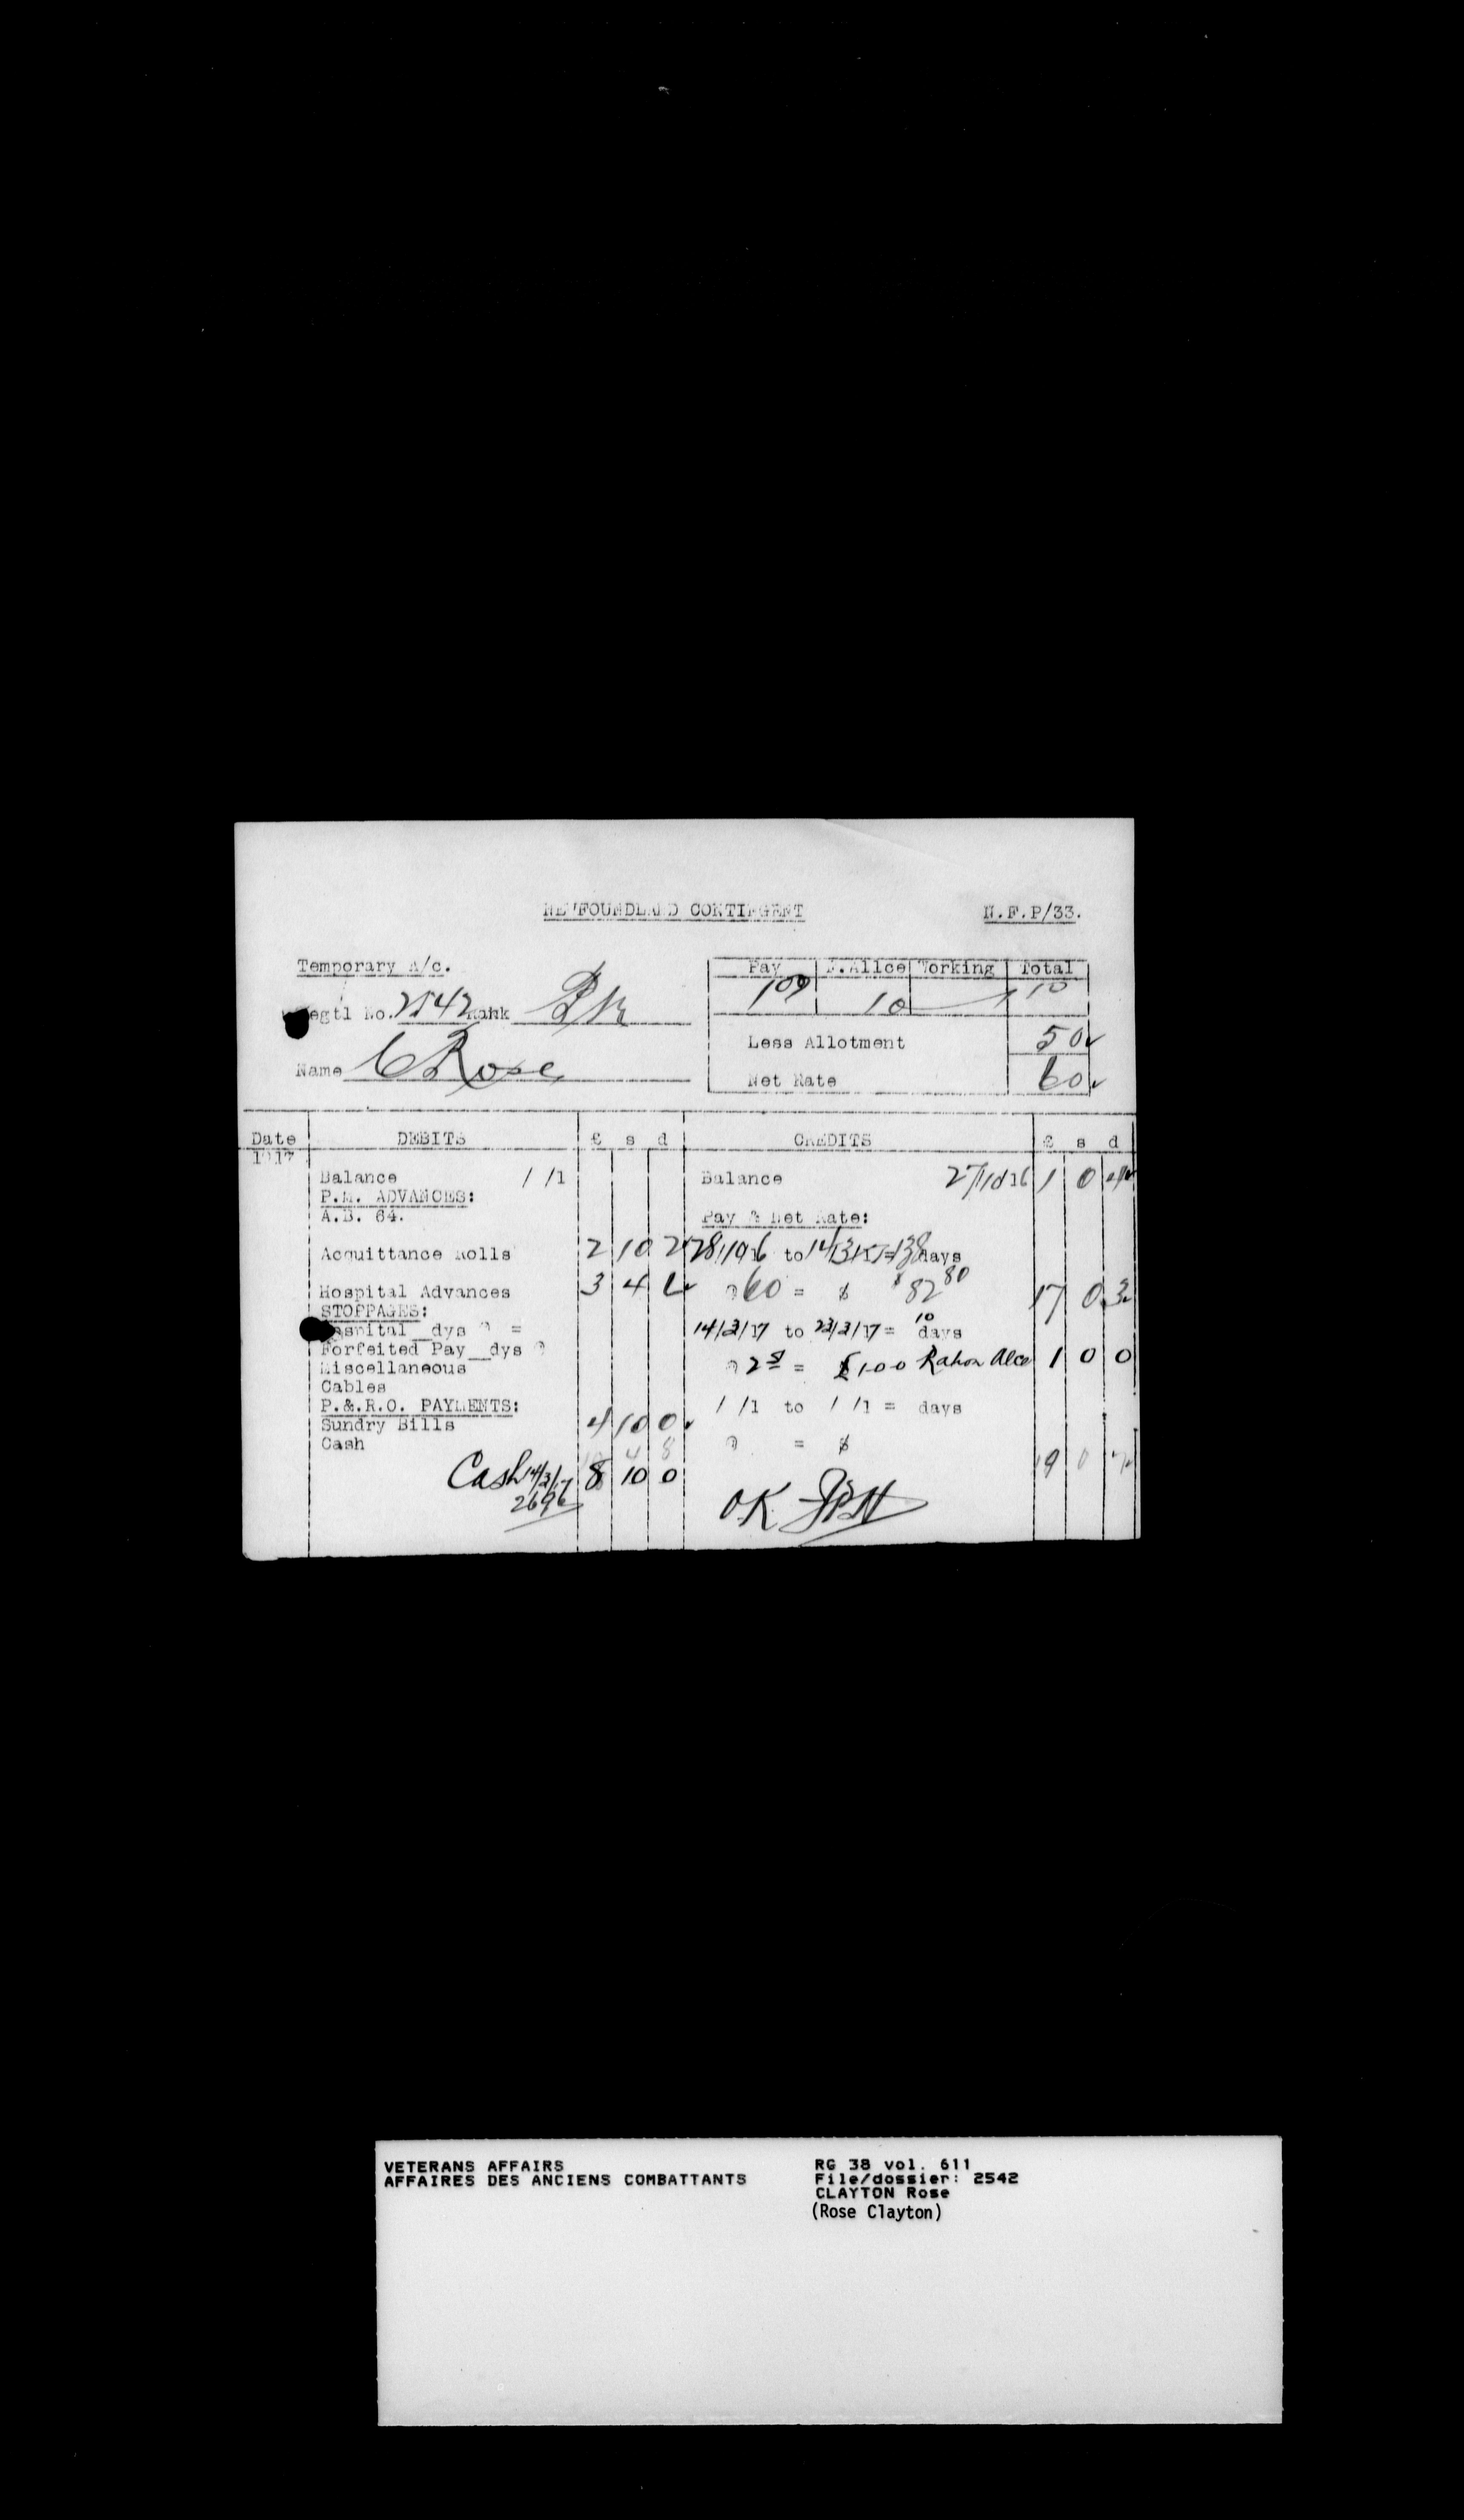 NEWFOUNDLAND CONTINGENT N.F.P/33.
Temporary A/c.
Pay F.Allce Working Total
100 10 — 1 10
Regtl No. 2542 Rank Pte
Less Allotment 50
Name C Rose
Net Rate 60
Date DEBITS £ s d CREDITS £ s d
1917
Balance / /1 Balance 27/10/16 1 0 4
P.M. ADVANCES:
A.B. 64. Pay & Net Rate:
Acquittance Rolls 2 10 2 28/10/16 to 14/3/17 = 138 days
Hospital Advances 3 4 6 @ 60 = $ 82 80 17 0 3
STOPPAGES:
Hospital __dys @ = 14/3/17 to 23/3/17 = 10 days
Forfeited Pay__dys @
Miscellaneous @ 2s = £1-0-0 Ration Alce 1 0 0
Cables
P.&.R.O. PAYMENTS: / /1 to / /1 = days
Sundry Bills 4 10 0
Cash @ = $
10 4 8 19 0 7
Cash 14/3/17 8 10 0
2696 OK
VETERANS AFFAIRS RG 38 vol. 611
AFFAIRES DES ANCIENS COMBATTANTS File/dossier: 2542
CLAYTON Rose
(Rose Clayton)